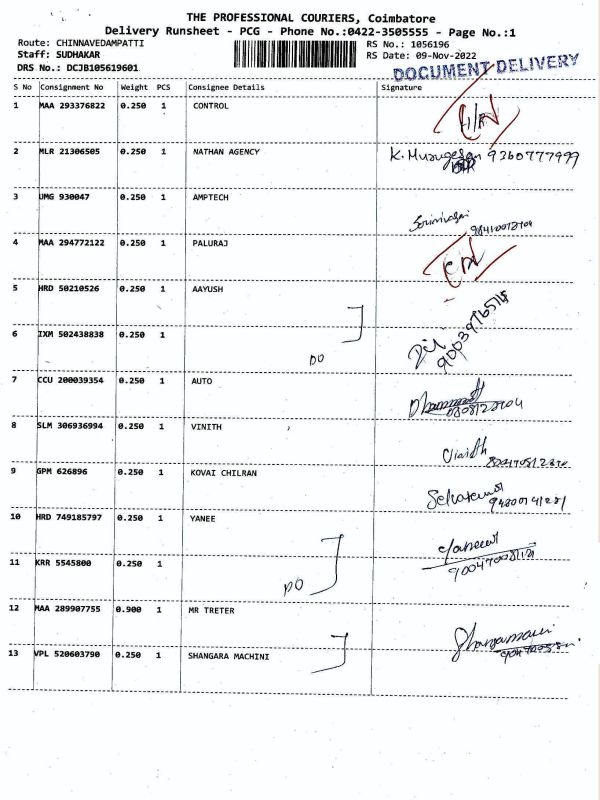 THE PROFESSIONAL COURIERS, Coimbatore
Delivery Runsheet - PCG - Phone No.:0422-3505555 - Page No.:1
Route: CHINNAVEDAMPATTI RS No.: 1056196
Staff: SUDHAKAR RS Date: 09-Nov-2022
DRS No.: DCJB105619601 DOCUMENT DELIVERY
S No Consignment No Weight PCS Consignee Details Signature
1 MAA 293376822 0.250 1 CONTROL
2 MLR 21306505 0.250 1 NATHAN AGENCY K. Murugesan 9360777999
3 UMG 930047 0.250 1 AMPTECH
4 MAA 294772122 0.250 1 PALURAJ
5 HRD 50210526 0.250 1 AAYUSH
6 IXM 502438838 0.250 1 DO
7 CCU 200039354 0.250 1 AUTO
8 SLM 306936994 0.250 1 VINITH
9 GPM 626896 0.250 1 KOVAI CHILRAN
10 HRD 749185797 0.250 1 YANEE
11 KRR 5545800 0.250 1 DO
12 MAA 289907755 0.900 1 MR TRETER
13 VPL 520603790 0.250 1 SHANGARA MACHINI